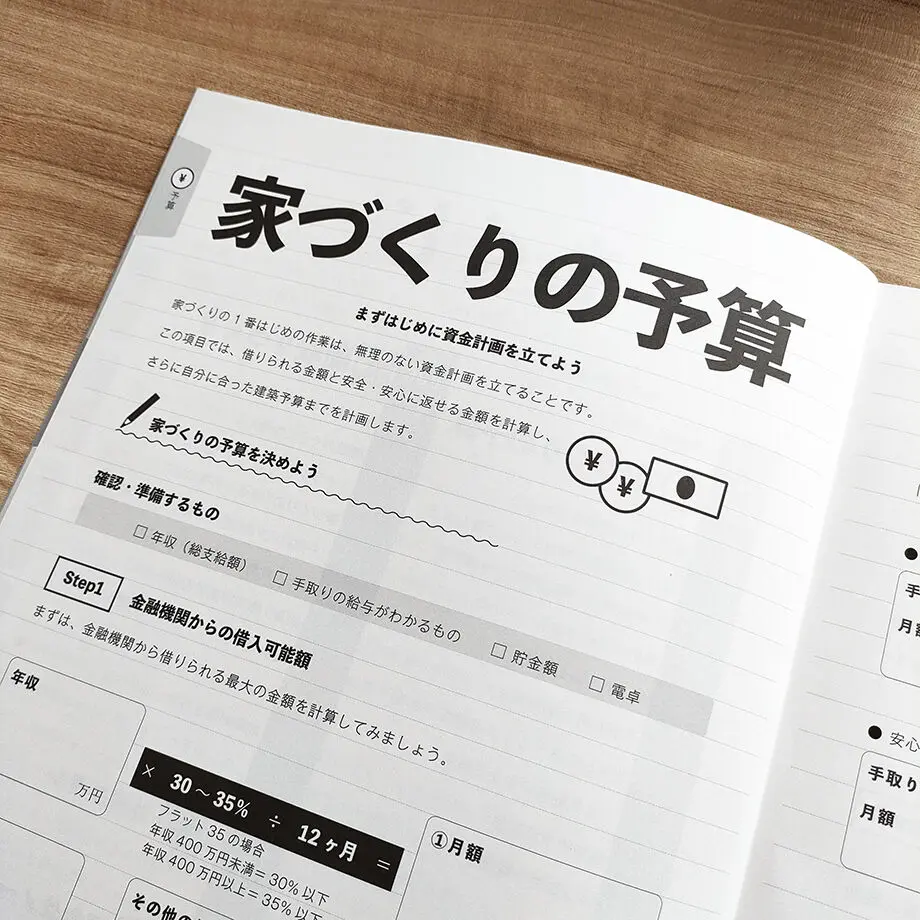 ¥
予算
家づくりの予算
まずはじめに資金計画を立てよう
家づくりの1番はじめの作業は、無理のない資金計画を立てることです。
この項目では、借りられる金額と安全・安心に返せる金額を計算し、
さらに自分に合った建築予算までを計画します。
家づくりの予算を決めよう
¥ ¥
確認・準備するもの
□ 年収（総支給額） □ 手取りの給与がわかるもの □ 貯金額 □ 電卓
Step1 金融機関からの借入可能額
まずは、金融機関から借りられる最大の金額を計算してみましょう。
年収
万円
× 30～35% ÷ 12ヶ月 =
フラット35の場合
年収400万円未満＝30%以下
年収400万円以上＝35%以下
①月額
その他の
手
月額
● 安心
手取り
月額